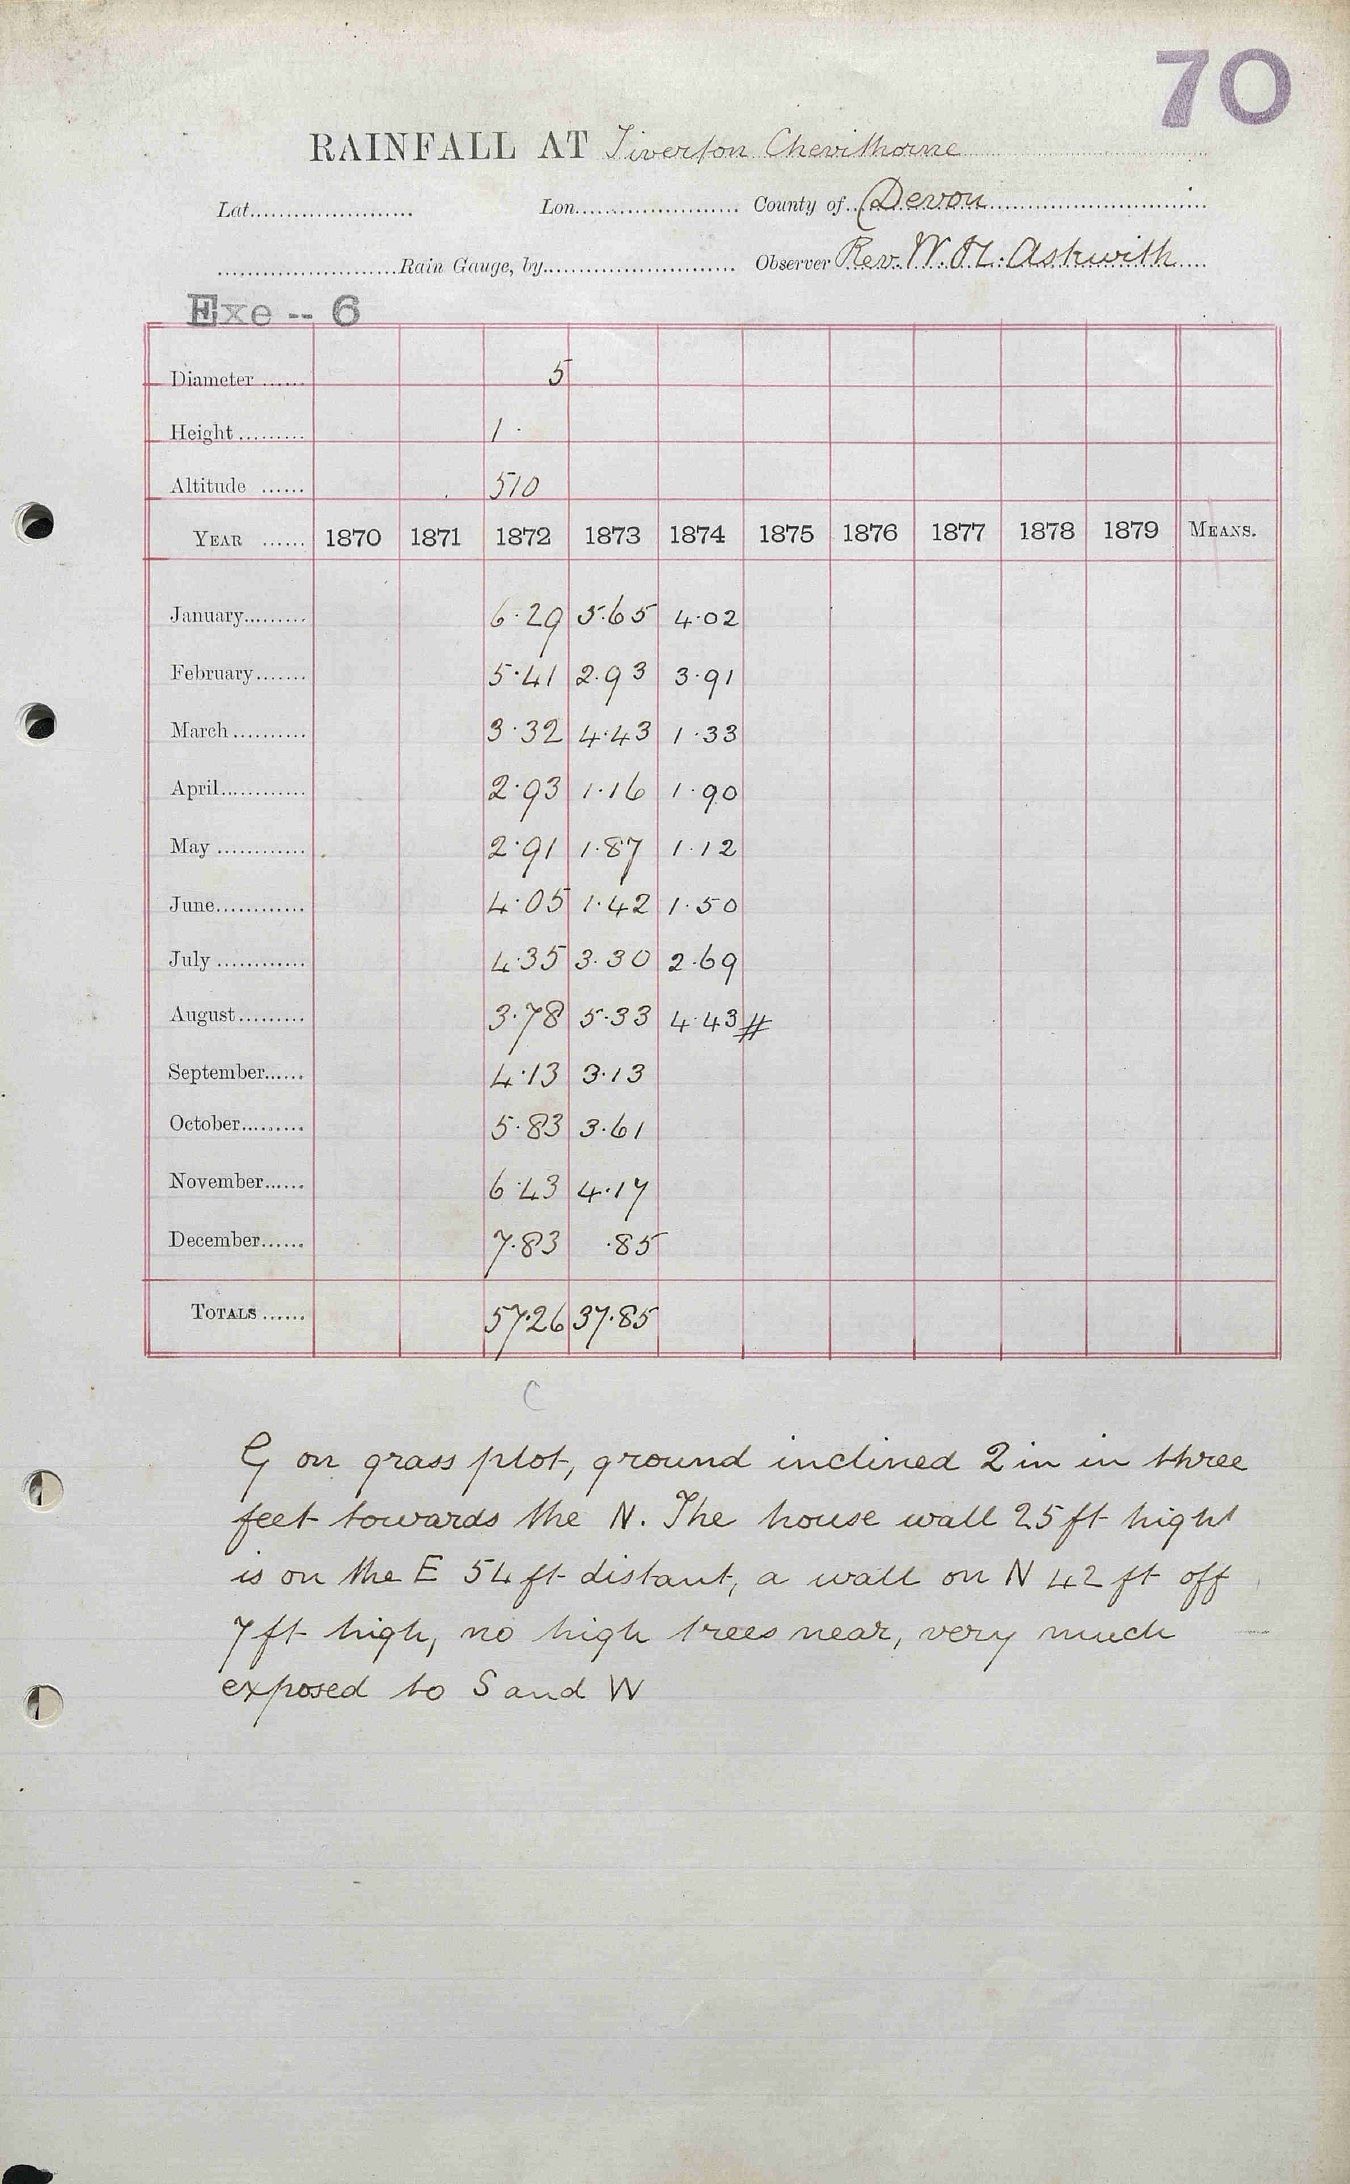 70
RAINFALL AT Tiverton Chevithorne
Lat...................... Lon...................... County of Devon
......................Rain Gauge, by...................... Observer Rev. W. H. Askwith
Exe -- 6
Diameter ...... 5
Height ......... 1 ·
Altitude ...... 510
YEAR ...... 1870 1871 1872 1873 1874 1875 1876 1877 1878 1879 MEANS.
January......... 6·29 5·65 4·02
February....... 5·41 2·93 3·91
March .......... 3·32 4·43 1·33
April............ 2·93 1·16 1·90
May ............ 2·91 1·87 1·12
June............ 4·05 1·42 1·50
July ............ 4·35 3·30 2·69
August......... 3·78 5·33 4·43 #
September...... 4·13 3·13
October......... 5·83 3·61
November...... 6·43 4·17
December...... 7·83 ·85
TOTALS ...... 57·26 37·85
C
G on grass plot, ground inclined 2 in in three
feet towards the N. The house wall 25 ft hight
is on the E 54 ft distant, a wall on N 42 ft off
7 ft high, no high trees near, very much
exposed to S and W